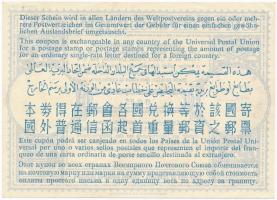 Dieser Schein wird in allen Ländern des Weltpostvereins gegen ein oder meh-
rere Postwertzeichen im Gesamtwert der Gebühr für einen einfachen gewöhn-
lichen Auslandsbrief umgetauscht.
This coupon is exchangeable in any country of the Universal Postal Union
for a postage stamp or postage stamps representing the amount of postage
for an ordinary single-rate letter destined for a foreign country.
本券得在郵會各國兌換等於該國寄
國外普通信函起首重量郵資之郵票
Este cupón podrá ser canjeado en todos los Países de la Unión Postal Uni-
versal por uno o varios sellos postales que representen el importe del fran-
queo de una carta ordinaria de porte sencillo destinada al extranjero.
Этот купон обменивается в странах Всемирного Почтового Союза
на почтовую марку или марки на сумму представляющую собой стоимость
оплаты простого письма в одну единицу веса по адресу за границу.